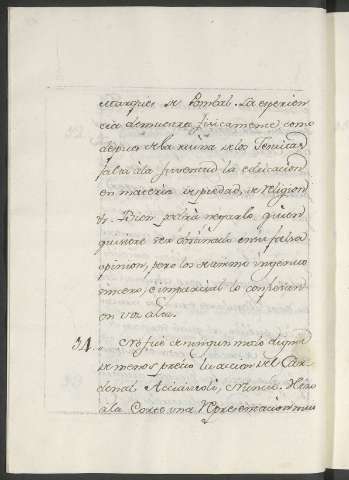 Marques de Pombal. La esperien
cia demuestra fisicamente, como
despues de la ruina de los Jesuitas
falta à la Juventud la educacion
en materia de piedad, de religion
&. Bien podrà negarlo, quien
quisiere ser obstinado en su falsa
opinion, pero los de animo ingenuo
sincero, è imparcial lo confiesan
en voz alta.
31. No fuè de ningun modo digna
de menos precio la accion del Car
denal Acciaivoli, Nuncio. Hizo
à la Corte una Representacion mui